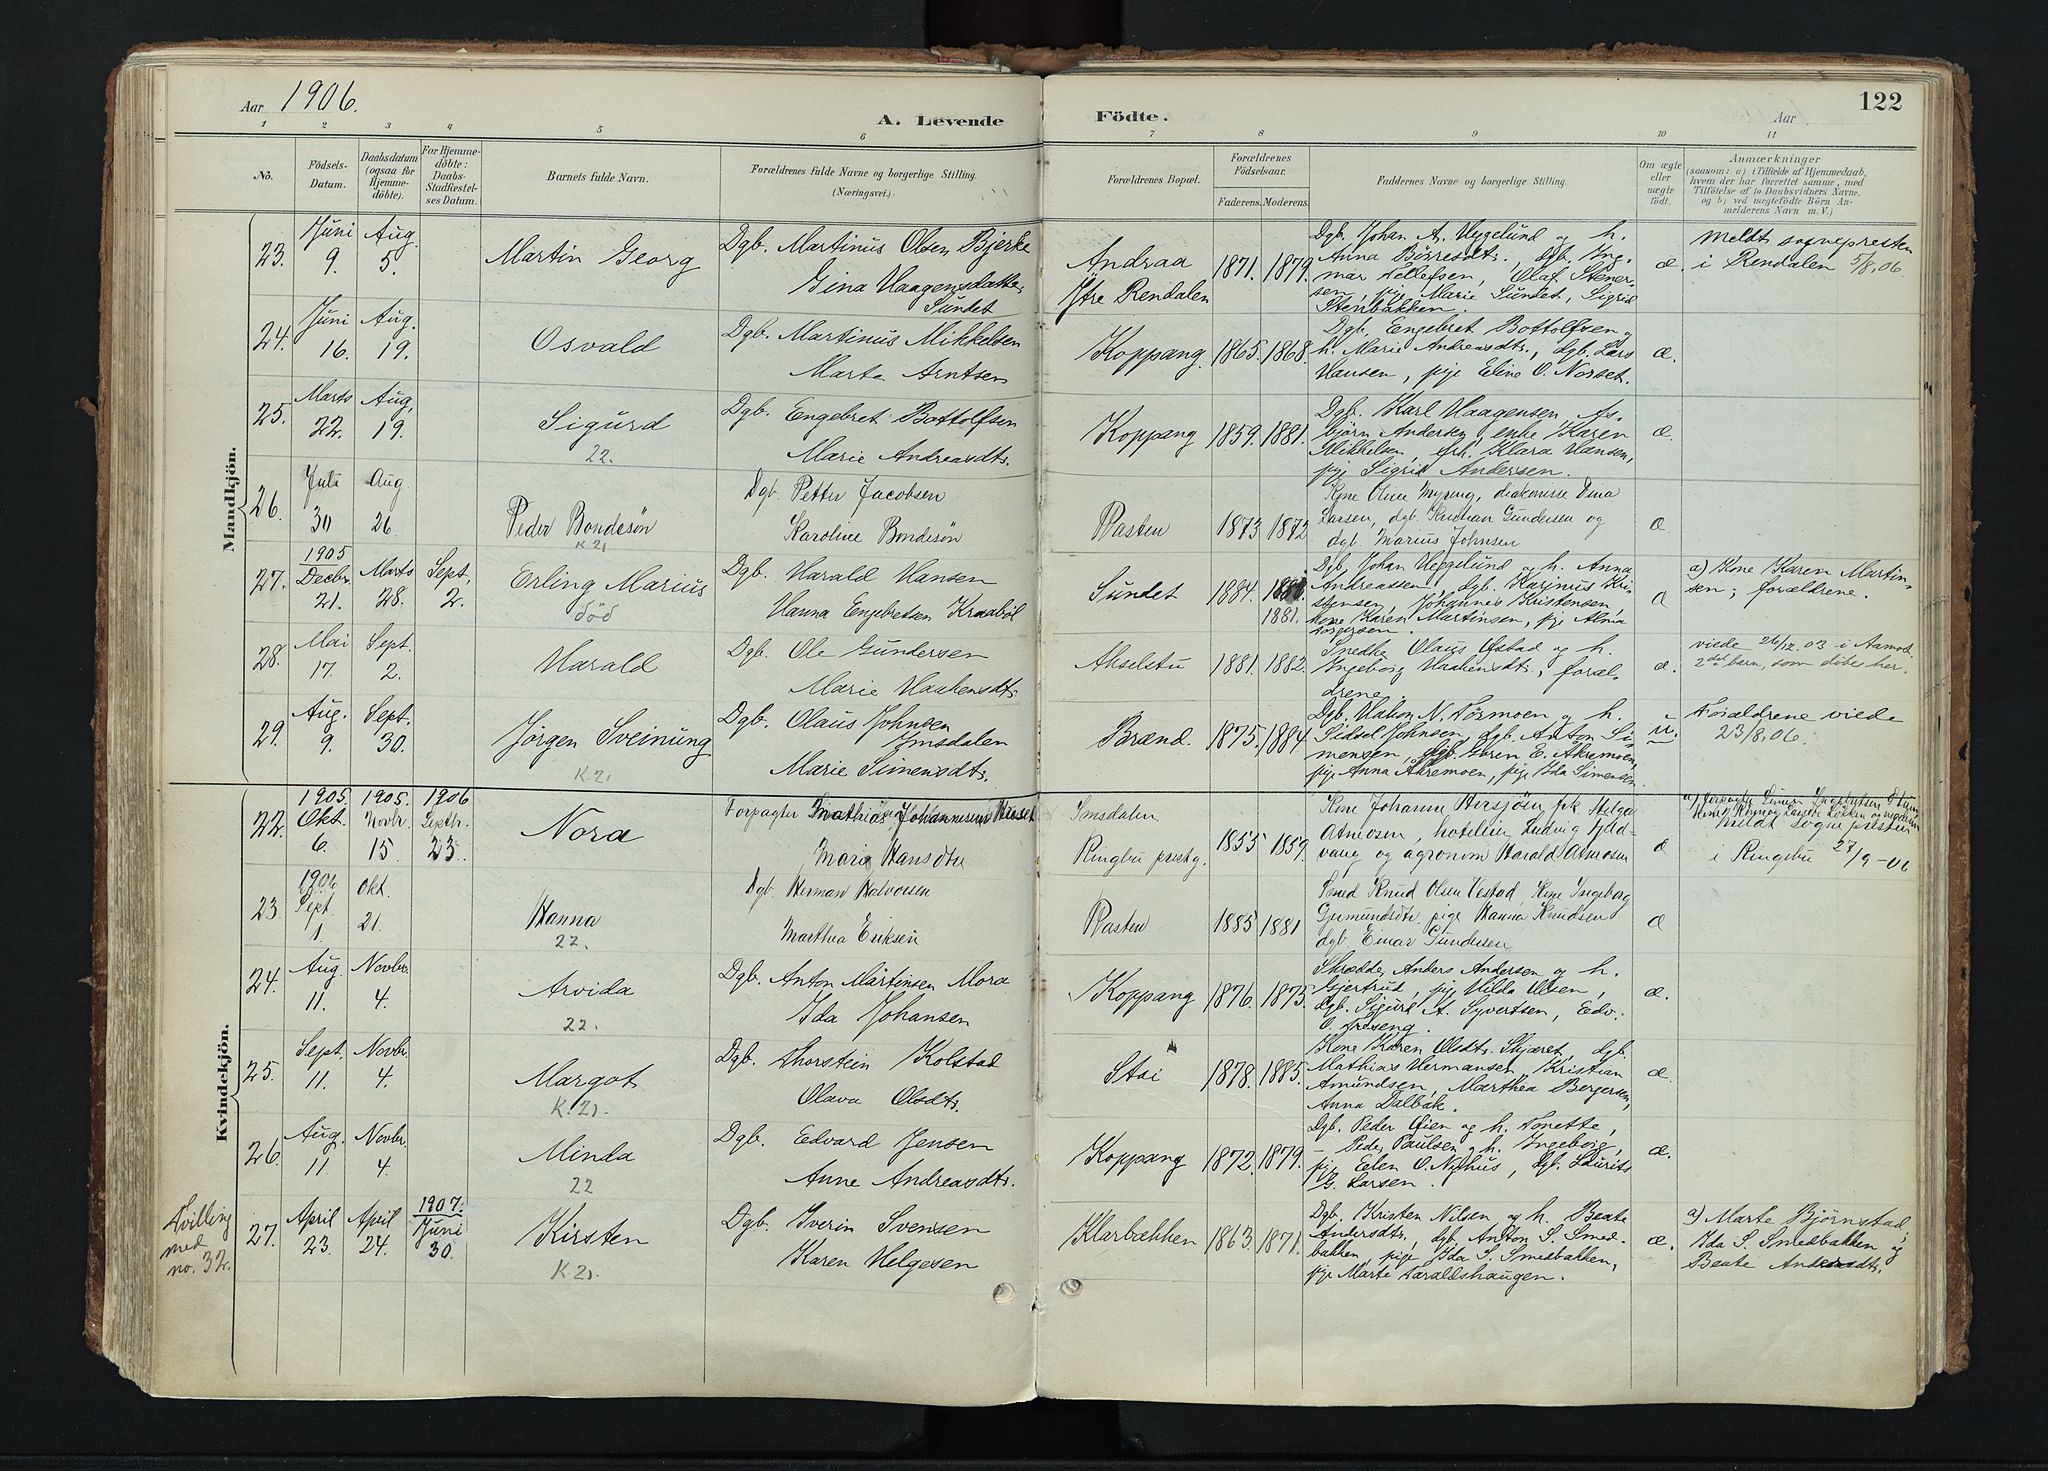 Aar 1906.
A. Levende Födte.
122
Aar
1 2 3 4 5 6 7 8 9 10 11
No.
Födsels-Datum.
Daabsdatum (ogsaa for Hjemmedöbte).
For Hjemmedöbte: Daabs-Stadfæstelses Datum.
Barnets fulde Navn.
Forældrenes fulde Navne og borgerlige Stilling.
(Næringsvei.)
Forældrenes Bopæl.
Forældrenes Födselsaar.
Faderens. Moderens.
Faddernes Navne og borgerlige Stilling.
Om ægte eller uægte født.
Anmærkninger
(saasom: a) i Tilfælde af Hjemmedaab, hvem der har forrettet samme, med Tilföielse af to Daabsvidners Navne, og b) ved uægtefödte Börn Anmelderens Navn m. V.)
Mandkjön.
23. Juni 9. Aug. 5. Martin Georg
Dgb. Martinus Olsen Bjerke
Gina Haagensdatter Sundet
Andraa Ytre Rendalen 1871. 1879.
Dgb. Johan A. Heggelund og h.
Anna Börresdtr., dgb. Ing-
mar Tellefsen, Olaf Stener-
sen, pige Marie Sundet, Sigrid
Stenbakken.
æ.
Meldt sognepresten
i Rendalen 5/8.06.
24. Juni 16. Aug. 19. Osvald
Dgb. Martinus Mikkelsen
Marte Arntsen
Koppang. 1865. 1868.
Dgb. Engebret Bottolfsen og
h. Marie Andreasdtr., dgb. Lars
Hansen, pige Eline O. Norset.
æ.
25. Marts 22. Aug. 19. Sigurd
22.
Dgb. Engebret Bottolfsen
Marie Andreasdtr.
Koppang 1859. 1881.
Dgb. Karl Haagensen, As-
björn Andersen, enke Karen
Mikkelsen, Klara Hansen,
pige Sigrid Andersen.
æ.
26. Juli 30 Aug 26 Peder Bondesøn
K 21
Dgb. Petter Jacobsen
Karoline Bondesøn
Rasten 1873 1872
Kone Oline Myreng, diakonisse Dina
Larsen, dgb. Kristian Gundersen og
dgb. Marius Johnsen
æ
27. 1905 Decbr. 21. Marts 28. Sept. 2. Erling Marius
død
Dgb. Harald Hansen
Hanna Engebretsen Kraabøl
Sundet 1884. 1881.
Dgb. Johan Heggelund og h. Anna
Andreassen, dgb. Karjnus Kri-
stensen, Johannes Kristensen,
kone Karen Martinsen, pige Alma
Torgersen.
æ
a) Kone Karen Martin-
sen; forældrene.
28. Mai 17. Sept. 2. Harald
Dgb. Ole Gundersen
Marie Haakensdtr.
Akselstu 1881. 1882.
Snedker Olaus Østad og h.
Ingeborg Haakensdtr., foræl-
drene.
æ.
viede 26/12.03 i Aamot.
2det barn, som døbes her.
29. Aug. 9. Sept. 30. Jörgen Sveinung
K 21
Dgb. Olaus Johnsen
Imsdalen
Marie Simensdtr.
Brænd. 1875. 1884
Dgb. Hakon N. Tørmoen og h.
Sidsel Johnsen, dgb. Anton Si-
mensen, dgb. Gøren E. Akremoen,
pige Anna Akremoen, pige Ida Simensen
u.
Forældrene viede
23/8.06.
Kvindekjön.
22. 1905. Okt. 6. 1905. Novbr. 15 1906 Septbr. 23 Nora
Forpagter Mathias Johannesen
Marie Hansdtr
Imsdalen
Ringbu prestg. 1855 1859.
Kone Johanne Hersjöen, frk Helga
Atneosen, hotelier Ludvig
og agronom Harald Atneosen
æ
meldt sognepresten
i Ringebu 27/9-06
23 1906 Sept. 1. Okt. 21. Hanna
22.
Dgb. Herman Halvorsen
Marthea Eriksen
Rasten 1885 1881
Smed Knud Olsen Vestad, Kone Ingeborg
Gjermundsdtr, pige Hanna Knudsen
dgb Einar Gundersen
æ
24. Aug 11. Novbr. 4. Arvida
22.
Dgb. Anton Martinsen Mora
Ida Johansen
Koppang 1876. 1875.
Skrædder Anders Andersen og h.
Gjertrud, pige Hilda Olsen,
dgb. Sigurd A. Syvertsen, Edv.
O. Trøseng.
æ.
25. Sept. 11. Novbr. 4. Margot
K. 21.
Dgb. Thorstein Kolstad
Olava Olsdtr.
Stai 1878. 1885.
Kone Karen Olsdtr. Skjæret, dgb.
Mathias Hermansen, Kristian
Amundsen, Marthea Bergersen,
Anna Dalbak.
æ.
26. Aug. 11. Novbr. 4. Minda
22
Dgb. Edvard Jensen
Anne Andreasdtr.
Koppang 1872. 1879.
Dgb. Peder Øien og h. Tonette,
- Peder Paulsen og h. Ingeborg,
pige Eelen O. Nyhus, dgb. Laurits
G. Larsen.
æ.
Tvilling
med
no. 32.
27. April 23. April 24. 1907. Juni 30. Kirsten
K 21.
Dgb. Iverin Svensen
Karen Helgesen
Klarbækken 1863. 1871.
Dgb. Kristen Nilsen og h. Beate
Andersdtr., dgb. Anton S. Smed-
bakken, pige Ida S. Smedbakken,
pige Marte Haraldshaugen.
æ.
a) Marte Björnstad;
Ida S. Smedbakken og
Beate Andersdtr.